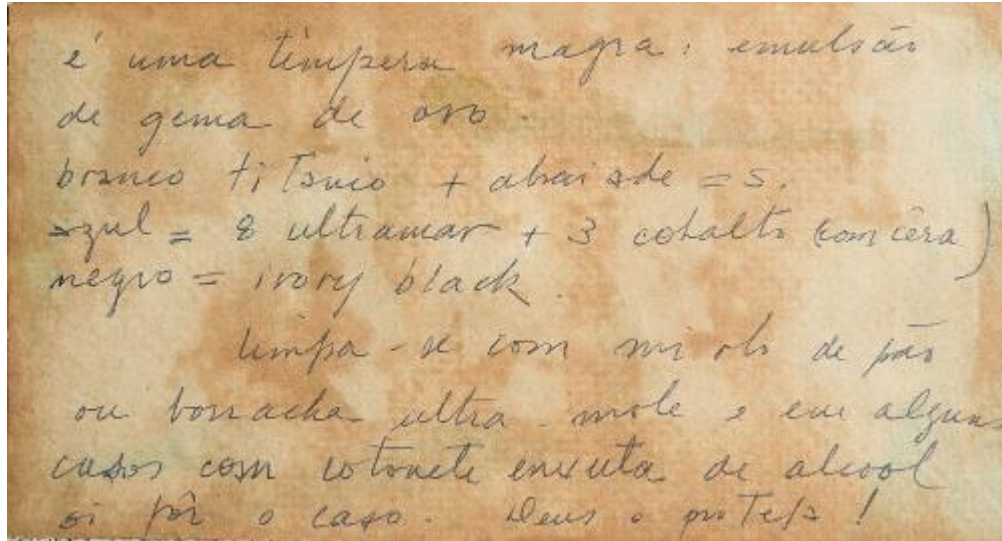 é uma têmpera magra: emulsão
de gema de ovo.
branco titanio + = 5.
azul = 8 ultramar + 3 cobalto (com cêra)
negro = ivory black.
limpa-se com miolo de pão
ou borracha ultra-mole e em alguns
casos com cotonete enxuta de alcool
si fôr o caso. Deus o proteja!